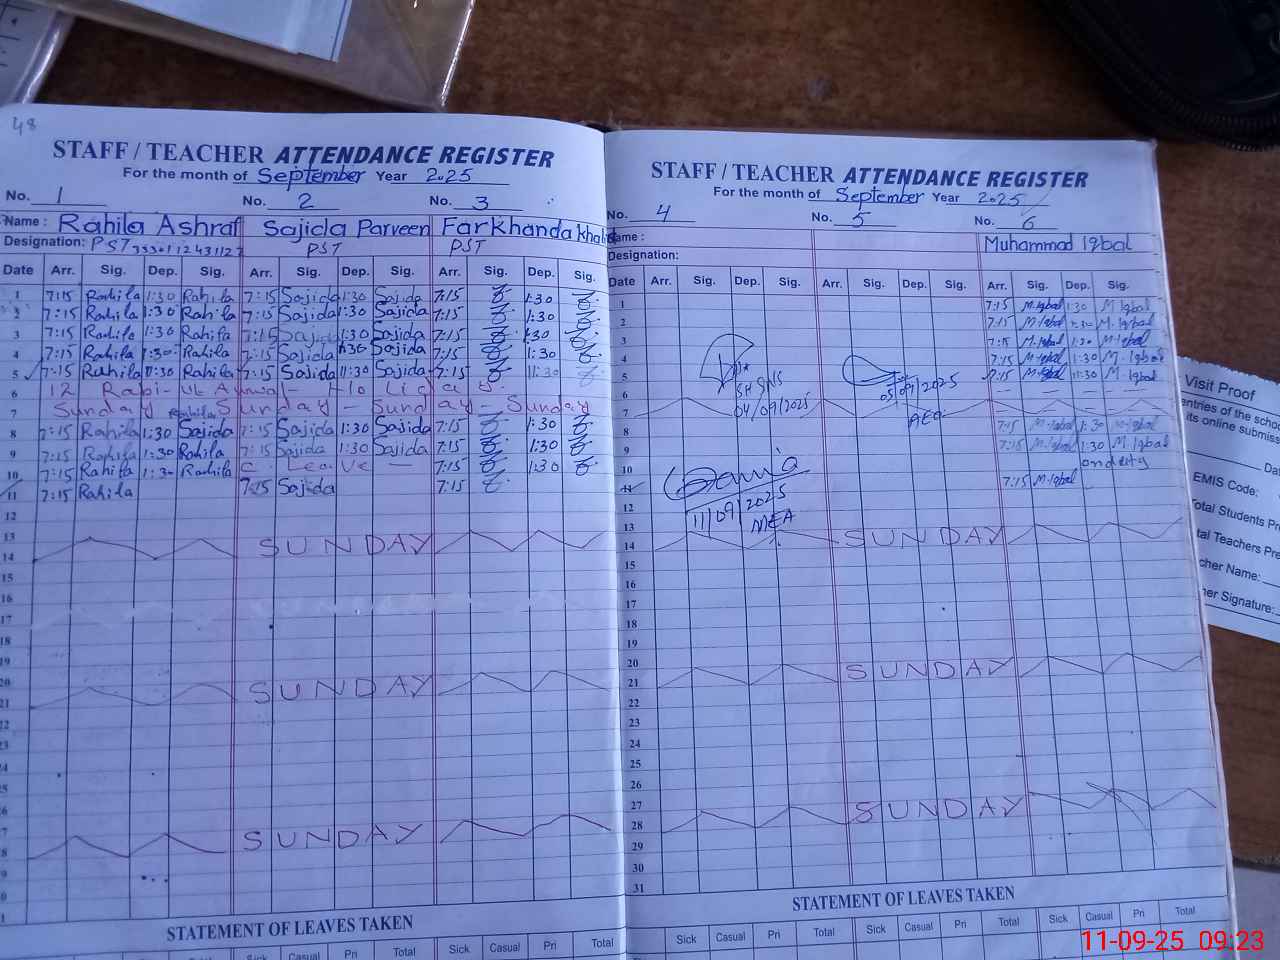 48
STAFF / TEACHER ATTENDANCE REGISTER
For the month of September Year 2025
No. 1 No. 2 No. 3
Name : Rahila Ashraf Sajida Parveen Farkhanda
Designation: PST PST PST
Date Arr. Sig. Dep. Sig. Arr. Sig. Dep. Sig. Arr. Sig. Dep. Sig.
1 7:15 Rahila 1:30 Rahila 7:15 Sajida 1:30 Sajida 7:15 1:30
2 7:15 Rahila 1:30 Rahila 7:15 Sajida 1:30 Sajida 7:15 1:30
3 7:15 Rahila 1:30 Rahila 7:15 Sajida 1:30 Sajida 7:15 1:30
4 7:15 Rahila 1:30 Rahila 7:15 Sajida 1:30 Sajida 7:15 1:30
5 7:15 Rahila 11:30 Rahila 7:15 Sajida 11:30 Sajida 7:15 11:30
6 12 Rabi-ul Awwal - Holiday.
7 Sunday Sunday - Sunday - Sunday
8 7:15 Rahila 1:30 Sajida 7:15 Sajida 1:30 Sajida 7:15 1:30
9 7:15 Rahila 1:30 Rahila 7:15 Sajida 1:30 Sajida 7:15 1:30
10 7:15 Rahila 1:30 Rahila C. Leave - 7:15 1:30
11 7:15 Rahila 7:15 Sajida 7:15
12
13
14 SUNDAY
15
16
17
18
19
20
21 SUNDAY
22
23
24
25
26
27
28 SUNDAY
STATEMENT OF LEAVES TAKEN
Sick Casual Pri Total Sick Casual Pri Total
STAFF / TEACHER ATTENDANCE REGISTER
For the month of September Year 2025
No. 4 No. 5 No. 6
Name : Muhammad Iqbal
Designation:
Date Arr. Sig. Dep. Sig. Arr. Sig. Dep. Sig. Arr. Sig. Dep. Sig.
1 7:15 M.Iqbal 1:30 M.Iqbal
2 7:15 M.Iqbal 1:30 M.Iqbal
3 7:15 M.Iqbal 1:30 M.Iqbal
4 7:15 M.Iqbal 1:30 M.Iqbal
5 7:15 M.Iqbal 11:30 M.Iqbal
04/09/2025
05/09/2025
AEO
6
7
8 7:15 M.Iqbal 1:30 M.Iqbal
9 7:15 M.Iqbal 1:30 M.Iqbal
10 on duty
11 7:15 M.Iqbal
11/09/2025
MEA
12
13
14 SUNDAY
15
16
17
18
19
20
21 SUNDAY
22
23
24
25
26
27
28 SUNDAY
29
30
31
STATEMENT OF LEAVES TAKEN
Sick Casual Pri Total Sick Casual Pri Total Sick Casual Pri Total
Visit Proof
entries of the
its online
EMIS Code:
Total Students
Teachers
Name:
Signature:
11-09-25 09:23